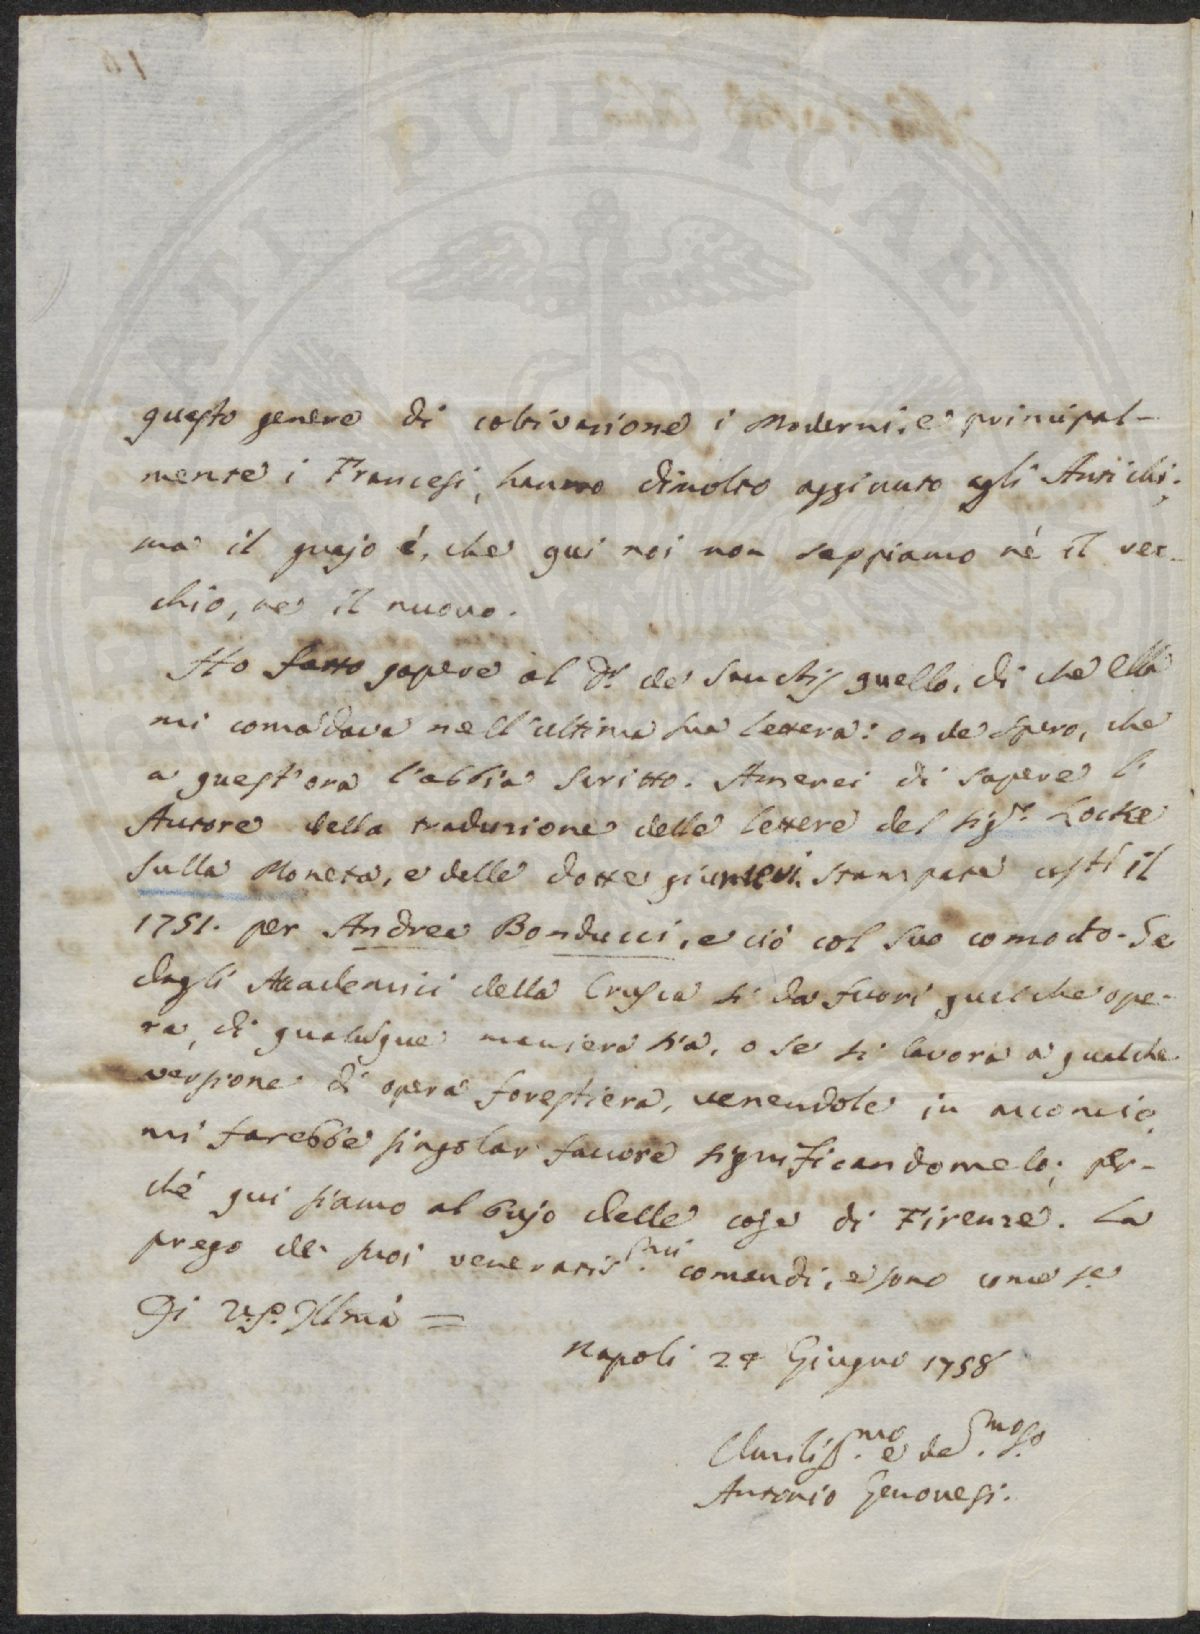 questo genere di coltivazione i Moderni, e principal-
mente i Francesi, hanno dimolto aggiunto agli Antichi;
ma il guajo é, che qui noi non sappiamo né il vec-
chio, né il nuovo.
Ho fatto sapere al Dr. de Sanctis quello, di che Ella
mi comādava nell'ultima sua lettera: onde spero, che
a quest'ora l'abbia scritto. Amerei di sapere l'
Autore della traduzione delle lettere del Sigr. Locke
sulla Moneta, e delle dotte giuntevi stampate costì il
1751. per Andrea Bonducci, e ciò col suo comodo. Se
dagli Accademici della Crusca si dà fuori qualche ope-
ra, di qualusque maniera sia, o se si lavora a qualche
versione di opera forestiera, venendole in acconcio,
mi farebbe singolar favore significandomelo; per-
ché qui siamo al bujo delle cose di Firenze. La
prego de' suoi veneratissmi. comandi, e sono come se
Di V.S. Illmā =
Napoli 24 Giugno 1758
Umiliss.mo e de.mo So.
Antonio Genovesi.